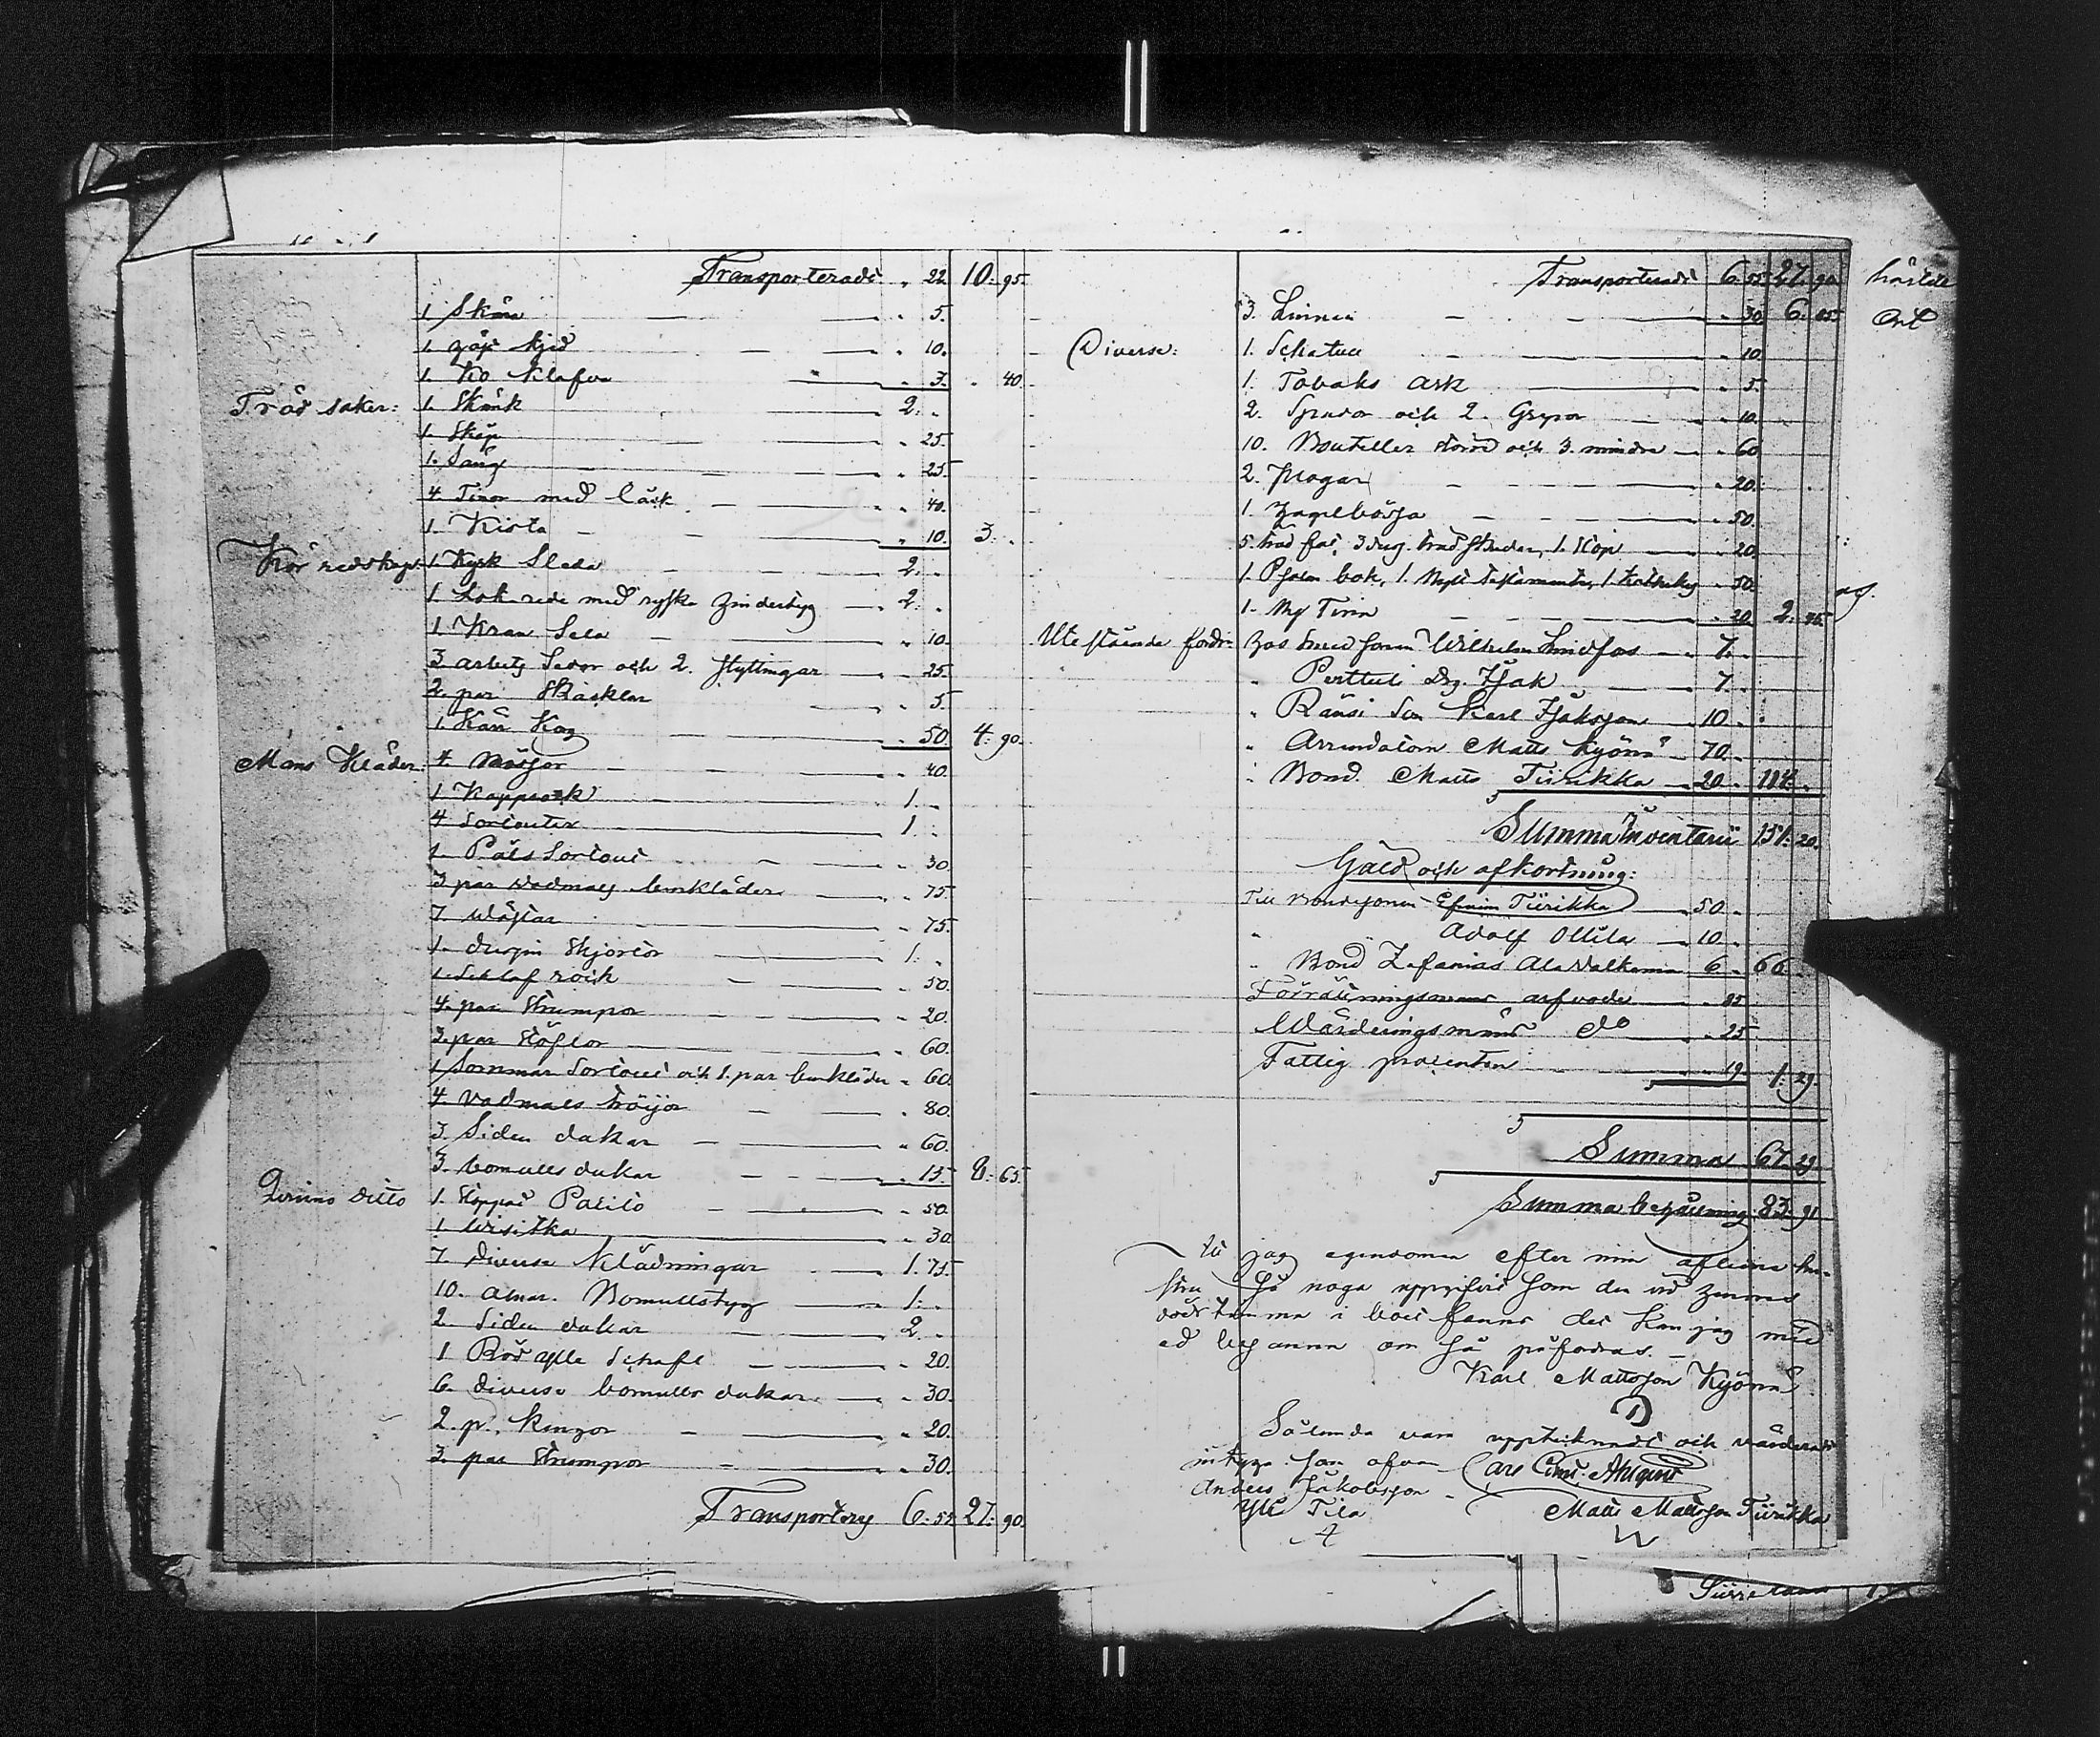 Transporterade " 22. 10. 95.
1. Skära " 5.
1. " 10.
1. Ko Klafva " 3. " 40.
Träd saker: 1. Skänk 2. "
1. Skåp " 25.
1. Säng " 25.
4. Tinor med läck " 40.
1. Kista " 10. 3. "
Kör redskap 1. Rysk Släda 2. "
1. rede med ryska 2. "
1. Kran Sela " 10.
3 arbets Selor och 2. " 25.
2. par Skacklor " 5.
1. Kärr " 50. 4. 90.
Mans Kläder: 4 Mössor " 40.
1. Kapprock 1. "
4 Sortouter 1. "
1. Päls Sortout " 30
3 par vadmals benkläder " 75.
7. Västar " 75.
1. dussin Skjortor 1. "
1. Schlaf rock " 50.
4. par Strumpor " 20.
3. par Stöflor " 60.
1 Sommar Sortout och 1. par benkläder " 60.
4. vadmals tröijor " 80.
3. Siden dukar " 60.
3. bomulls dukar " 15. 8. 65.
Qvinno ditto 1. Stoppad Paltto " 50.
1. Wisitka " 30.
7. diverse Klädningar 1. 75.
10. alnar. Bomullstyg 1. "
2. Siden dukar 2. "
1 Schafl " 20.
6. diverse bomulls dukar " 30.
2. p. Kängor " 20.
3. par Strumpor " 30.
Transporteras 6. 55. 27. 90.
Transporterade 6. 55 27. 90.
3. Linnen " 30 6. 85.
Diverse: 1. Schatull " 10
1. Tobaks ask " 5.
2. Spador och 2. Grepor " 10.
10. Bouteller större och 3. mindre " 60
2. " 20.
1. " 50.
5. träd fat, 3 trädskedar, 1. Stop " 20.
1. Psalm bok, 1. Nytt Testamente, 1. " 50.
1. Ny Tina " 20. 2. 45.
Utestående fordr: Wilhelm Lindfors 7. "
" Perttuli Isak 7. "
" Ränsi Son Karl Isaksson 10 "
" Arrendatorn Matts Kyönä 70. "
" Bond. Matts Tiirikka 20. " 114. "
Summa Inventarii 151. 20.
Gäld och afkortning:
Till Bondesonen Efraim Tiirikka 50. "
" Adolf Ollila 10. "
" Bond Zefanias Ala Valkama 6. " 66. "
Förrättningsmans arfvode " 85
Wärderingsmäns do " 25
Fattig procenten " 19 1. 29.
Summa 67. 29.
Summa behållning 83. 91
jag egendomen efter min aflidna hu-
stru så noga uppgifvit som den vid hennes
i boet fanns det kan jag med
ed om så påfodras.
Karl Mattsson Kyönä
Sålunda vara upptecknadt och värderadt
intyga som ofvan Carl Ahlqvist
Anders Jakobsson
Yli Tila Matts Mattsson Tiirikka